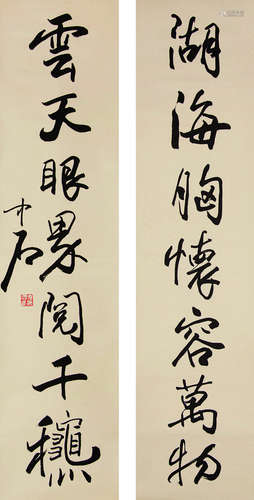 湖海胸懷容萬物
雲天眼界閱千龝
中石